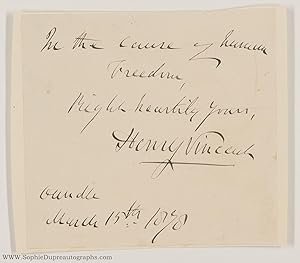 In the cause of human
Freedom,
Right heartily yours,
Henry Vincent
Oundle
March 15th 1878
www.SophieDupreautographs.com